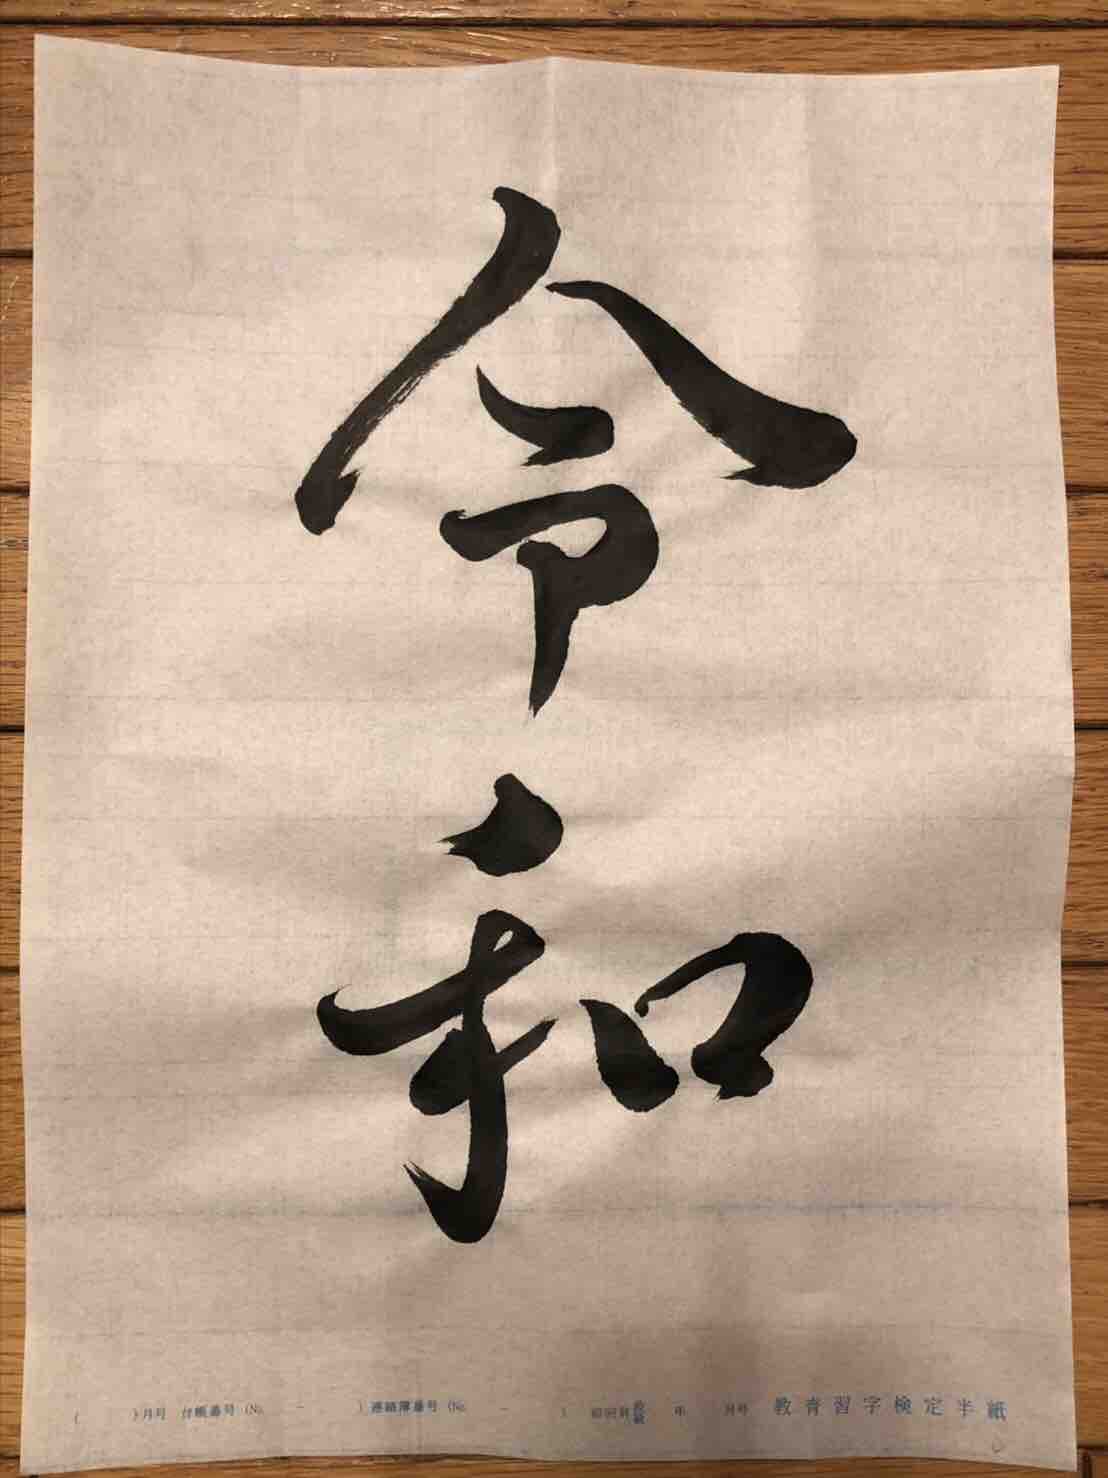 令和
( )月号 台帳番号 (No. － ) 連絡簿番号 (No. － ) 年 月号 教育習字検定半紙